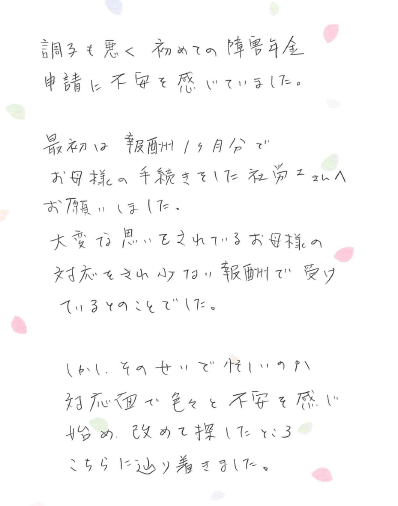 調子も悪く 初めての障害年金
申請に不安を感じていました。
最初は 報酬1ヶ月分で
お母様の手続きをした社労士さんへ
お願いしました。
大変な思いをされているお母様の
対応をされ少ない報酬で受け
ているとのことでした。
しかし、そのせいで忙しいのか
対応面で色々と不安を感じ
始め、改めて探したところ
こちらに辿り着きました。